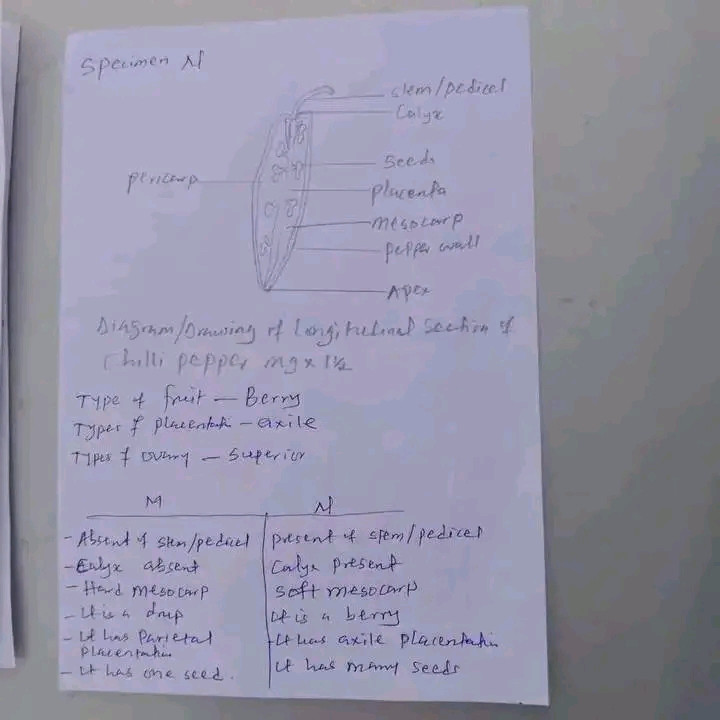 Specimen N
stem/pedicel
Calyx
seeds
pericarp
placenta
mesocarp
pepper wall
Apex
Diagram/Drawing of longitudinal section of
Chilli pepper mg x 1½
Type of fruit — Berry
Types of placentatn — axile
Types of ovary — Superior
M N
- Absent of stem/pedicel present of stem/pedicel
- Calyx absent Calyx present
- Hard mesocarp Soft mesocarp
- It is a drup It is a berry
- It has Parietal It has axile placentatn
placentatn
- It has one seed. It has many seeds